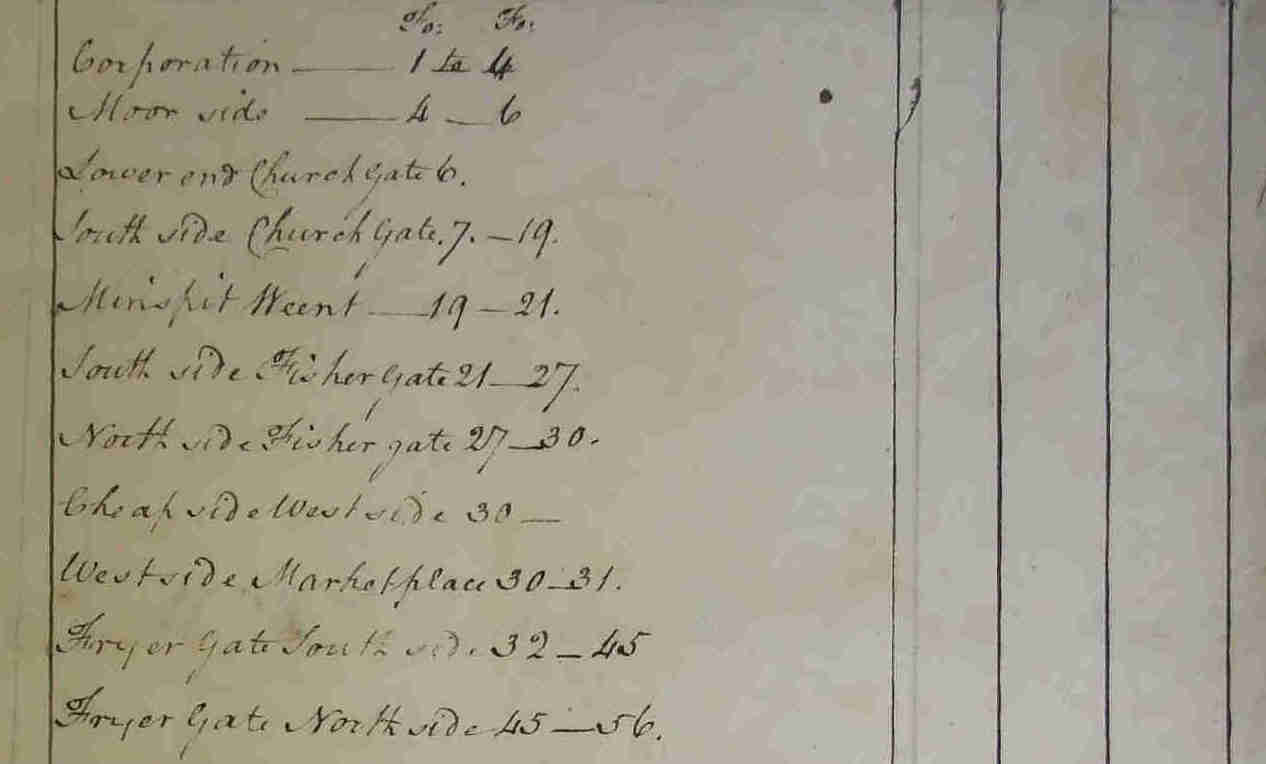 Fo: Fo:
Corporation — 1 to 4
Moor side — 4 — 6
Lower end Church Gate 6.
South side Church Gate. 7. — 19.
Minspit Weent — 19 — 21.
South side Fisher Gate 21 — 27.
North side Fisher gate 27 — 30.
Cheapside West side 30 —
West side Marketplace 30 — 31.
Fryer Gate South side 32 — 45
Fryer Gate North side 45 — 56.